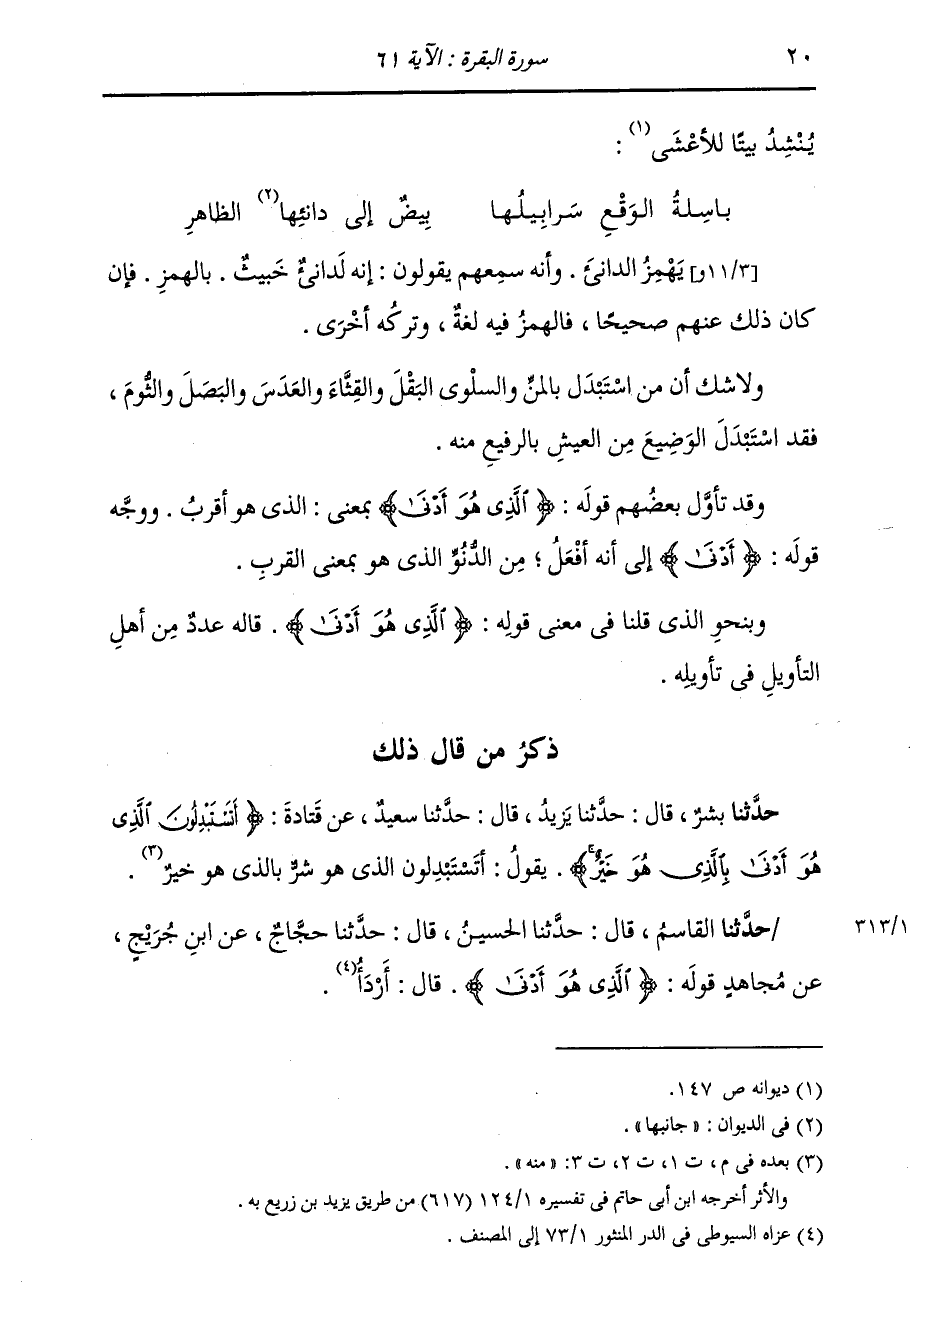 ٢٠ سورة البقرة : الآية ٦١
يُنْشِدُ بيتًا للأعْشَى(١) :
باسِلةُ الوَقْعِ سَرابِيلُها بِيضٌ إلى دانِئِها(٢) الظاهرِ
[١١/٣و] يَهْمِزُ الدانئَ . وأنه سمِعهم يقولون : إنه لَدانئٌ خَبيثٌ . بالهمزِ . فإن
كان ذلك عنهم صحيحًا ، فالهمزُ فيه لغةٌ ، وتركُه أخْرَى .
ولاشك أن من اسْتَبْدَل بالمنِّ والسلْوى البَقْلَ والقِثَّاءَ والعَدَسَ والبَصَلَ والثُّومَ ،
فقد اسْتَبْدَلَ الوَضِيعَ مِن العيشِ بالرفيعِ منه .
وقد تأوَّل بعضُهم قولَه : ﴿ ٱلَّذِى هُوَ أَدْنَىٰ ﴾ بمعنى : الذى هو أقربُ . ووجَّه
قولَه : ﴿ أَدْنَىٰ ﴾ إلى أنه أفْعَلُ ؛ مِن الدُّنُوِّ الذى هو بمعنى القربِ .
وبنحوِ الذى قلنا فى معنى قولِه : ﴿ ٱلَّذِى هُوَ أَدْنَىٰ ﴾ . قاله عددٌ مِن أهلِ
التأويلِ فى تأويلِه .
ذكرُ من قال ذلك
حدَّثنا بشرٌ ، قال : حدَّثنا يَزيدُ ، قال : حدَّثنا سعيدٌ ، عن قَتادةَ : ﴿ أَتَسْتَبْدِلُونَ ٱلَّذِى
هُوَ أَدْنَىٰ بِٱلَّذِى هُوَ خَيْرٌ ﴾ . يقولُ : أتَسْتَبْدِلون الذى هو شرٌّ بالذى هو خيرٌ(٣) .
٣١٣/١ /حدَّثنا القاسمُ ، قال : حدَّثنا الحسينُ ، قال : حدَّثنا حجَّاجٌ ، عن ابنِ جُرَيْجٍ ،
عن مُجاهدٍ قولَه : ﴿ ٱلَّذِى هُوَ أَدْنَىٰ ﴾ . قال : أَرْدَأُ(٤) .
(١) ديوانه ص ١٤٧.
(٢) فى الديوان : « جانبها » .
(٣) بعده فى م ، ت ١، ت ٢، ت ٣: « منه » .
والأثر أخرجه ابن أبى حاتم فى تفسيره ١٢٤/١ (٦١٧) من طريق يزيد بن زريع به .
(٤) عزاه السيوطى فى الدر المنثور ٧٣/١ إلى المصنف .